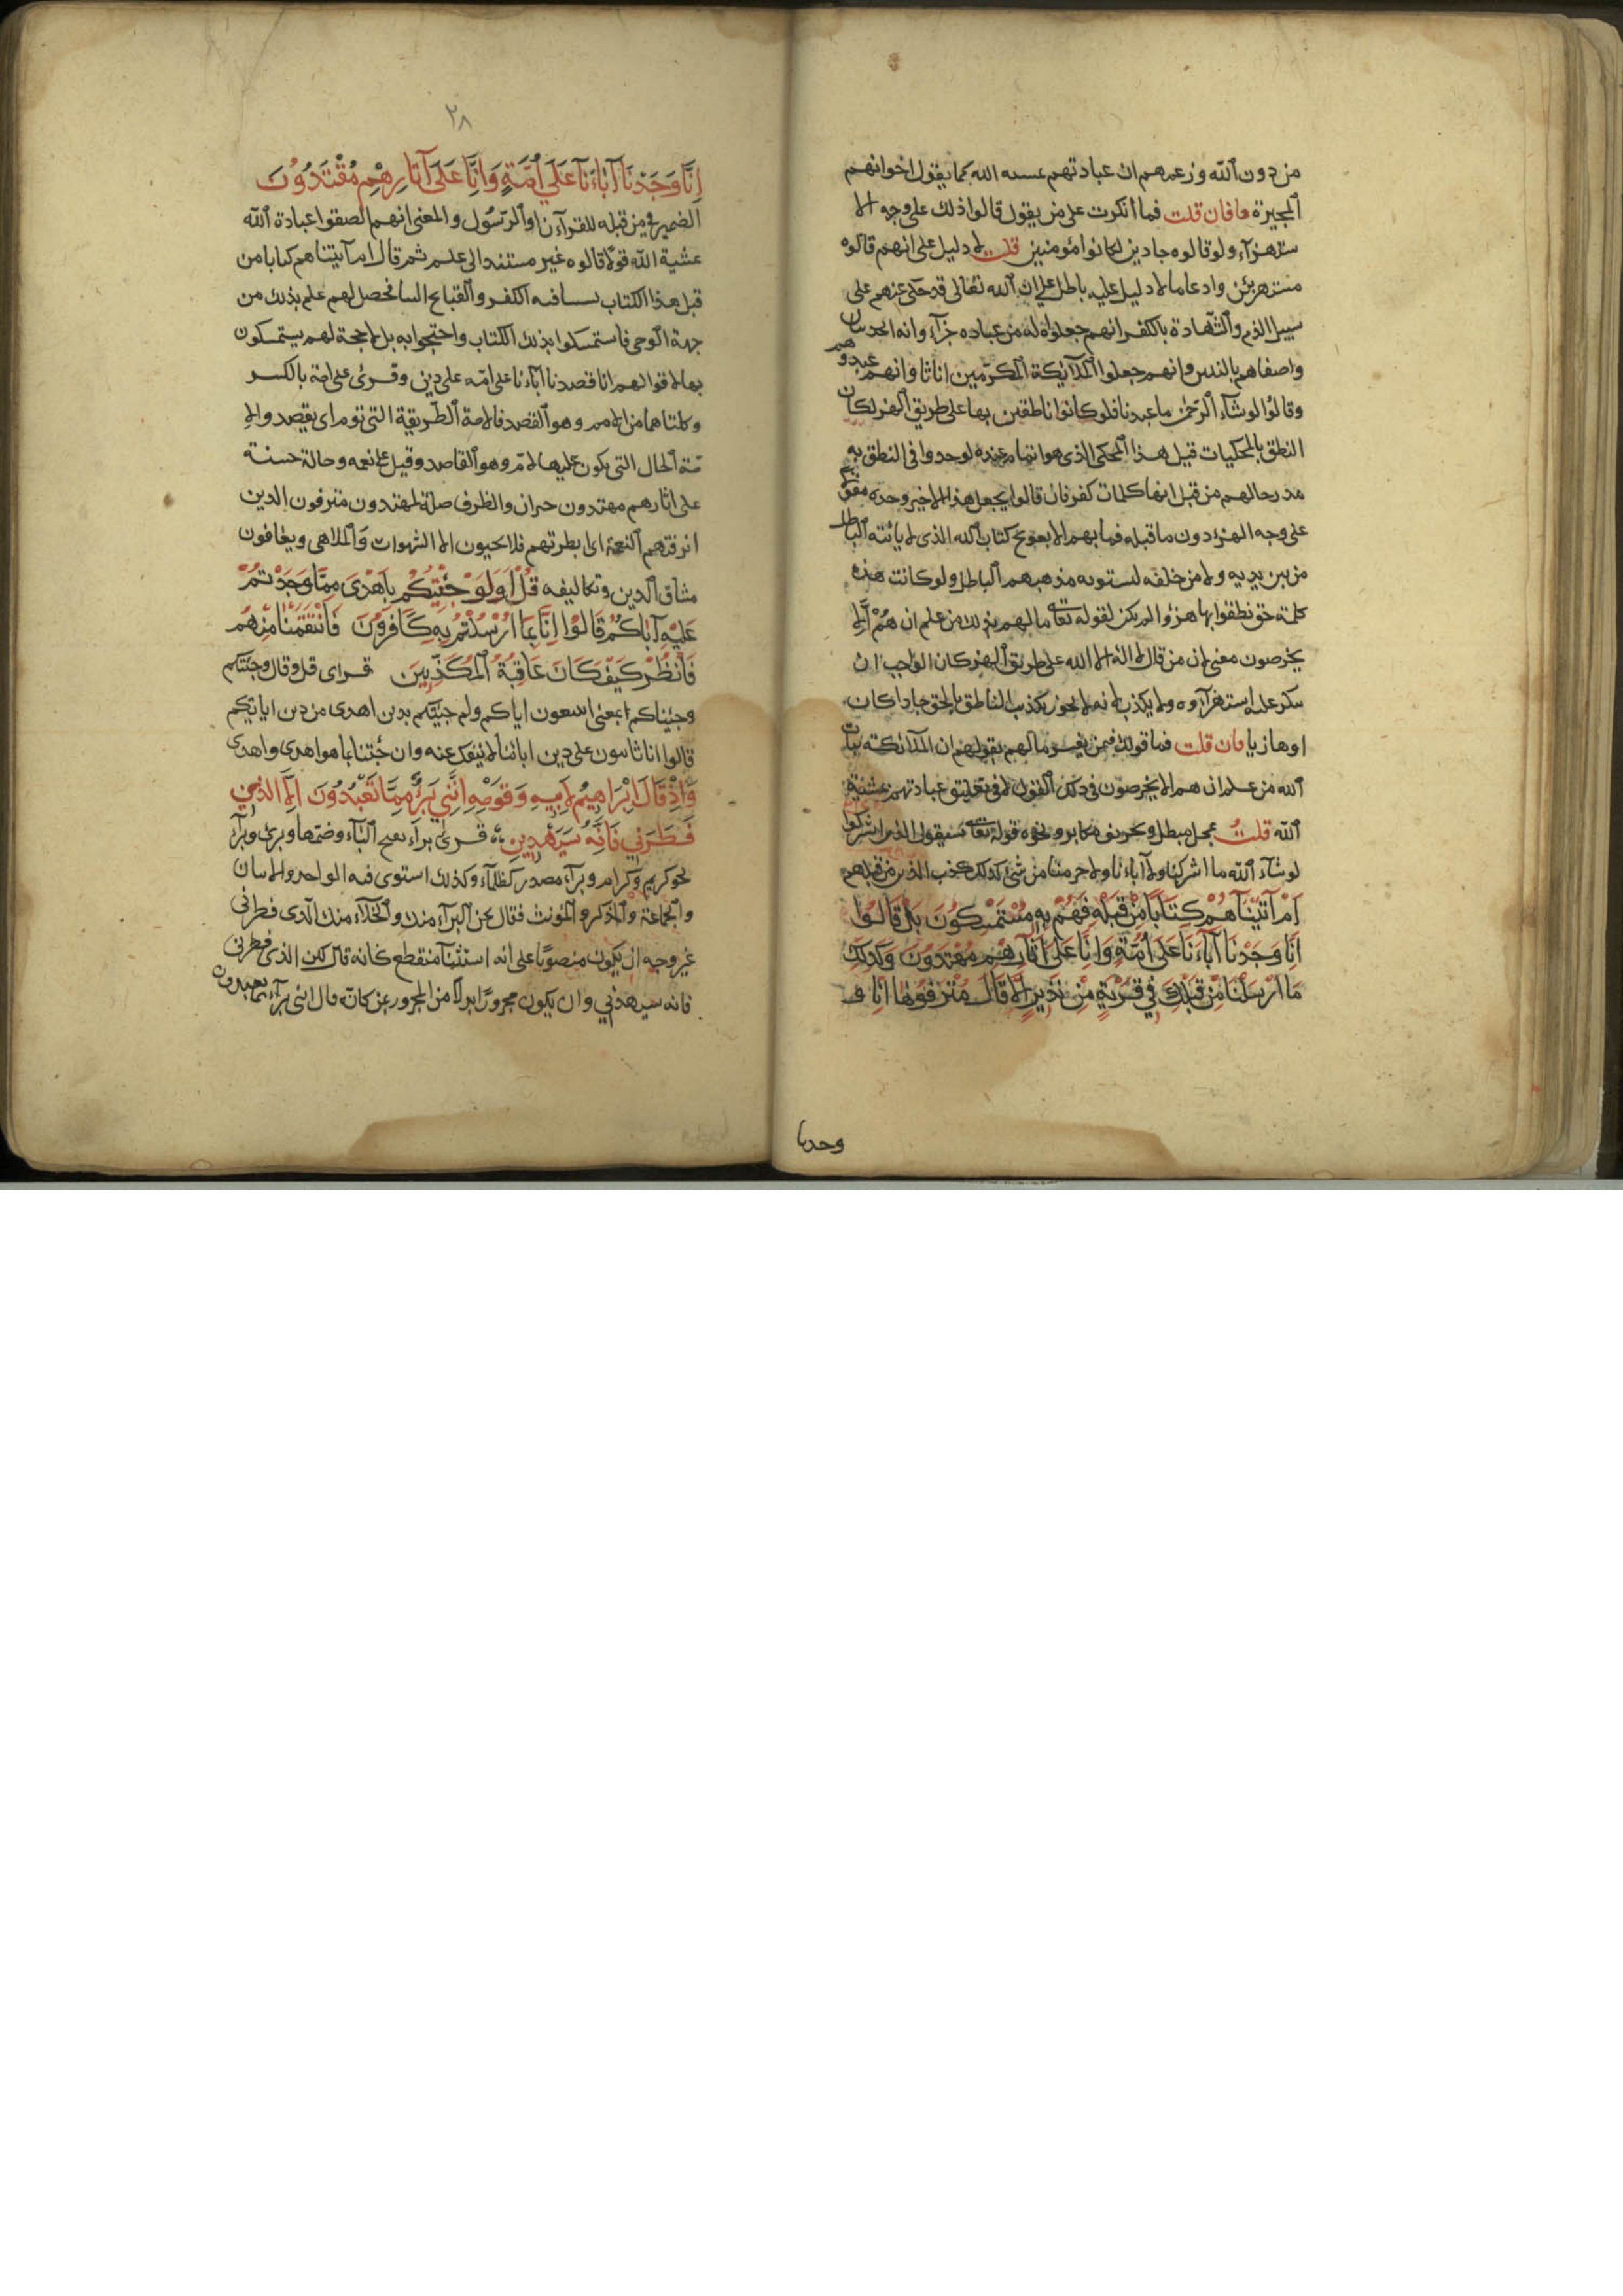 من دون الله وزعمهم ان عبادتهم بمشيه الله كما يقول اخوانهم
المجبرة فان قلت فما انكرت على من يقول قالوا ذلك على وجه الا
ستهزآء ولو قالوه جادين لكانوا مؤمنين قلت لا دليل على انهم قالوه
مستهزئين وادعا ما لا دليل عليه باطل على ان الله تعالى قد حكى عنهم على
سبيل الذم والشهادة بالكفر انهم جعلوا له من عباده جزآء وانه اتخذ بنات
واصفاهم بالبنين وانهم جعلوا الملآئكة المكرمين اناثا وانهم عبدوهم
وقالوا لوشآء الرحمن ما عبدنا فلو كانوا ناطقين بها على طريق الهزء لكان
النطق بالمحكيات قبل هذا المحكى الذى هو ايمان عنده لو جدوا فى النطق به
مدحا لهم من قبل انها كلمات كفر فان قالوا يجعل هذا الاخير وحده مقول
على وجه الهزء دون ما قبله فما بهم الا بعويج كتاب الله الذى لا يأتيه الباطل
من بين يديه ولا من خلفه لتسويه مذهبهم الباطل ولو كانت هذه
كلمة حق نطقوا بها هزؤا لم يكن لقوله تعالى ما لهم بذلك من علم ان هم الا
يخرصون معنى لان من قال لا اله الا الله على طريق الهزء كان الواجب ان
ينكر عليه استهزآؤه ولا يكذب لانه لا يجوز تكذيب الناطق بالحق جادا كان
او هازيا فان قلت فما قولك فيمن يفسر ما لهم بقولهم ان الملآئكة بنات
الله من علم ان هم الا يخرصون فى ذلك القول لا فى تعليق عبادتهم بمشية
الله قلت تمحل مبطل وتحريف مكابر ونحوه قوله تعالى سيقول الذين اشركوا
لوشآء الله ما اشركنا ولا آباءنا ولا حرمنا من شئ كذلك كذب الذين من قبلهم
اَمْ آتَيْنَاهُمْ كِتَابًا مِنْ قَبْلِهِ فَهُمْ بِهِ مُسْتَمْسِكُونَ بَلْ قَالُوا
اِنَّا وَجَدْنَا آبَاءَنَا عَلَى اُمَّةٍ وَاِنَّا عَلَى آثَارِهِمْ مُهْتَدُونَ وَكَذلِكَ
مَا اَرْسَلْنَا مِنْ قَبْلِكَ فِي قَرْيَةٍ مِنْ نَذِيرٍ اِلَّا قَالَ مُتْرَفُوهَا اِنَّا و
وجدنا
٢٨
اِنَّا وَجَدْنَا آبَاءَنَا عَلَى اُمَّةٍ وَاِنَّا عَلَى آثَارِهِمْ مُقْتَدُونَ
الضمير فى من قبله للقرآن او الرسول والمعنى انهم الصقوا عبادة الله
بمشية الله قولا قالوه غير مستند الى علم ثم قال ام آتيناهم كتابا من
قبل هذا الكتاب نسبنا فيه الكفر والقبايح الينا فحصل لهم علم بذلك من
جهة الوحى فاستمسكوا بذلك الكتاب واحتجوا به بل لا حجة لهم يستمسكون
بها الا قولهم انا قصدنا اباءنا على امة على دين وقرئ على امة بالكسر
وكلتاهما من الام وهو القصد فالامة الطريقة التى تؤم اى يقصد والا
مة الحال التى يكون عليها الام وهو القاصد وقيل على نعمه وحالة حسنة
على اثارهم مهتدون خبران والظرف صلة لمهتدون مترفون الذين
اترفتهم النعمة اى ابطرتهم فلا يحبون الا الشهوات والملاهى ويعافون
مشاق الدين وتكاليفه قُلْ اَوَلَوْ جِئْتُكُمْ بِاَهْدَى مِمَّا وَجَدْتُمْ
عَلَيْهِ آبَاكُمْ قَالُوا اِنَّا بِمَا اُرْسِلْتُمْ بِهِ كَافِرُونَ فَانْتَقَمْنَا مِنْهُمْ
فَانْظُرْ كَيْفَ كَانَ عَاقِبَةُ الْمُكَذِّبِينَ قراى قل وقال وجئتكم
وجئناكم بمعنى اتتبعون اباكم ولو جئتكم بدين اهدى من دين ابائكم
قالوا انا ثابتون على دين ابائنا لا ننفك عنه وان جئتنا بما هو اهدى واهدى
وَاِذْ قَالَ اِبْرَاهِيمُ لِاَبِيهِ وَقَوْمِهِ اِنَّنِي بَرَآءٌ مِمَّا تَعْبُدُونَ اِلَّا الَّذِي
فَطَرَنِي فَاِنَّهُ سَيَهْدِينِ قرئ برآء بفتح الباء وضمها وبرئ وبرآء
نحو كريم وكرام وبرآء مصدر كظمآء وكذلك استوى فيه الواحد والاثنان
والجماعة والمذكر والمؤنث فقال نحن البرآء منك والخلآء منك الذى فطرنى
غير وجه ان يكون منصوبا على انه استثناء منقطع كانه قال لكن الذى فطرنى
فانه سيهدنى وان يكون مجرورا بدلا من المجرور بمن كانه قال اننى برآء مما تعبدون